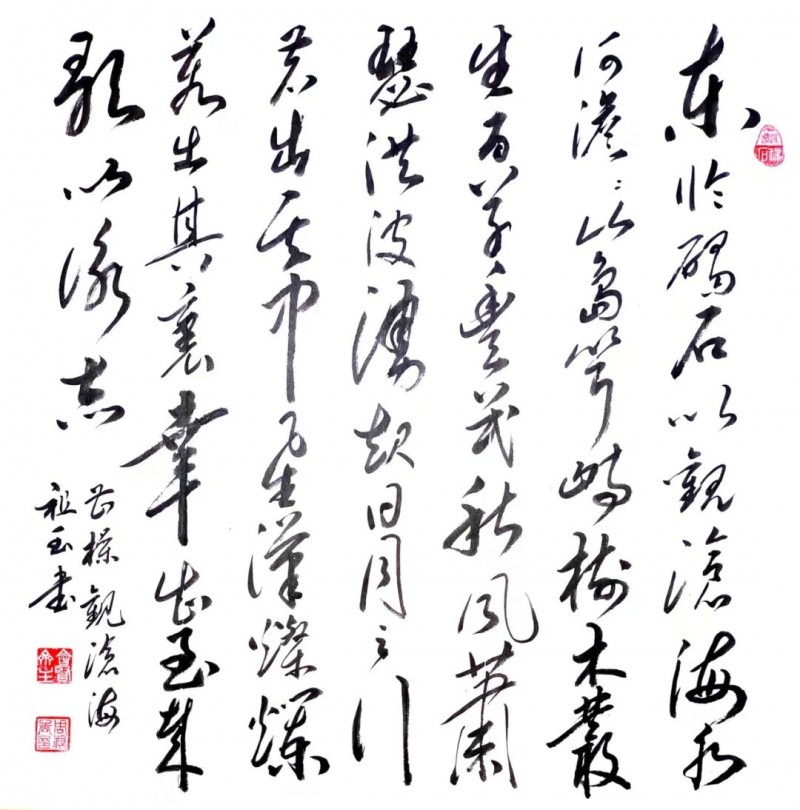 東臨碣石以觀滄海水
何澹澹山島竦峙樹木叢
生百草豐茂秋風蕭
瑟洪波湧起日月之行
若出其中星漢燦爛
若出其裏幸甚至哉
歌以詠志
曹操觀滄海
祖玉書